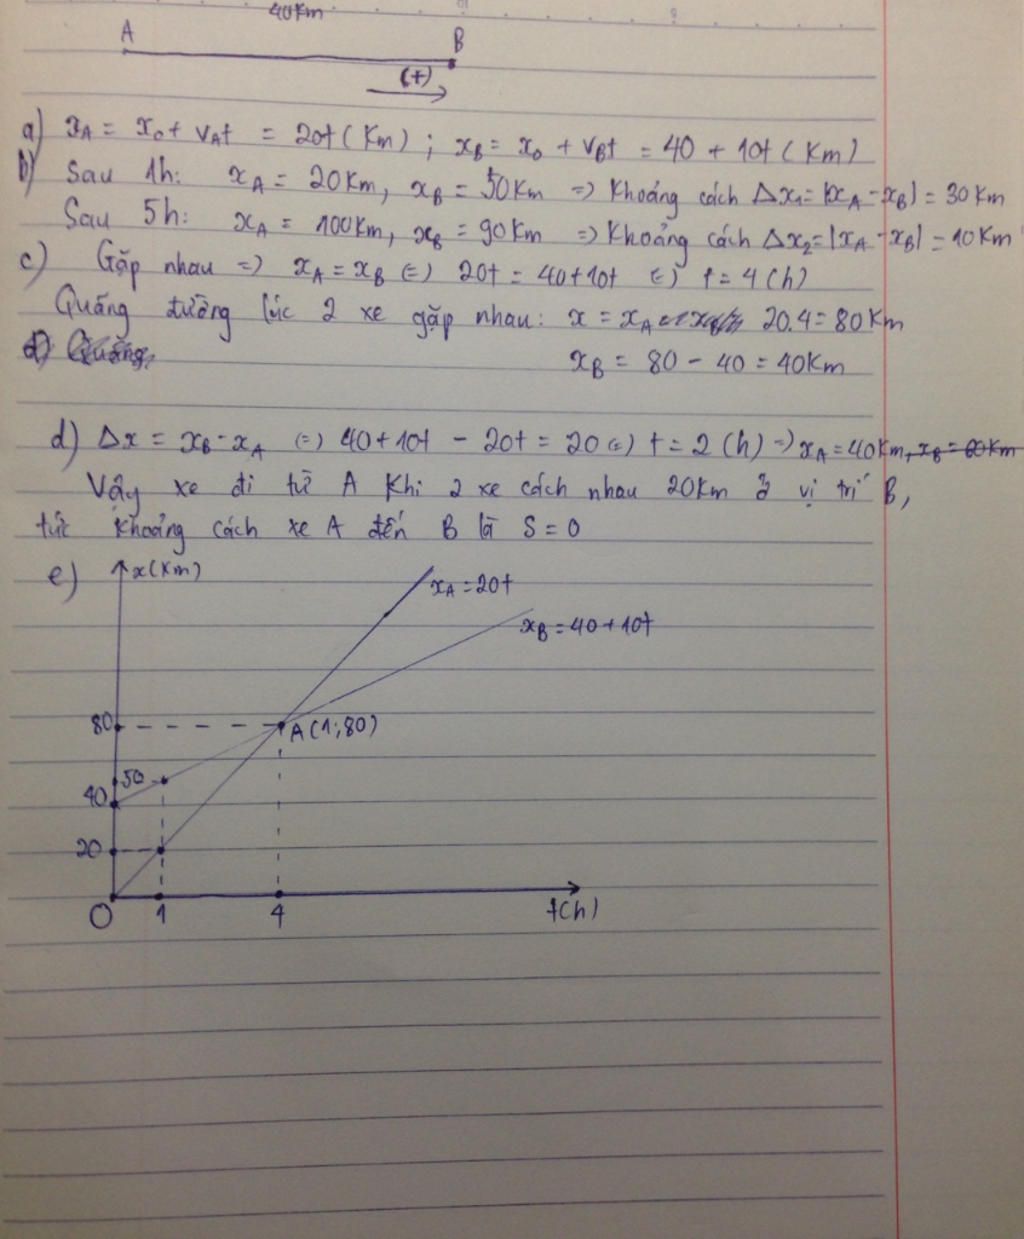 40Km
A B
(+)
a) xA = x0 + vAt = 20t (Km) ; xB = x0 + vBt = 40 + 10t (Km)
b) Sau 1h: xA = 20Km, xB = 50Km => Khoảng cách Δx1 = |xA - xB| = 30Km
Sau 5h: xA = 100Km, xB = 90Km => Khoảng cách Δx2 = |xA - xB| = 10Km
c) Gặp nhau => xA = xB (=) 20t = 40+10t (=) t = 4 (h)
Quãng đường lúc 2 xe gặp nhau: x = xA 20.4 = 80Km
d) Quãng
xB = 80 - 40 = 40Km
d) Δx = xB - xA (=) 40+10t - 20t = 20 (=) t = 2 (h) => xA = 40Km, xB = 60Km
Vậy xe đi từ A Khi 2 xe cách nhau 20Km ở vị trí B,
tức Khoảng cách xe A đến B là S = 0
e) x(Km)
xA = 20t
xB = 40+10t
80 A(1;80)
50
40
20
O 1 4 t(h)